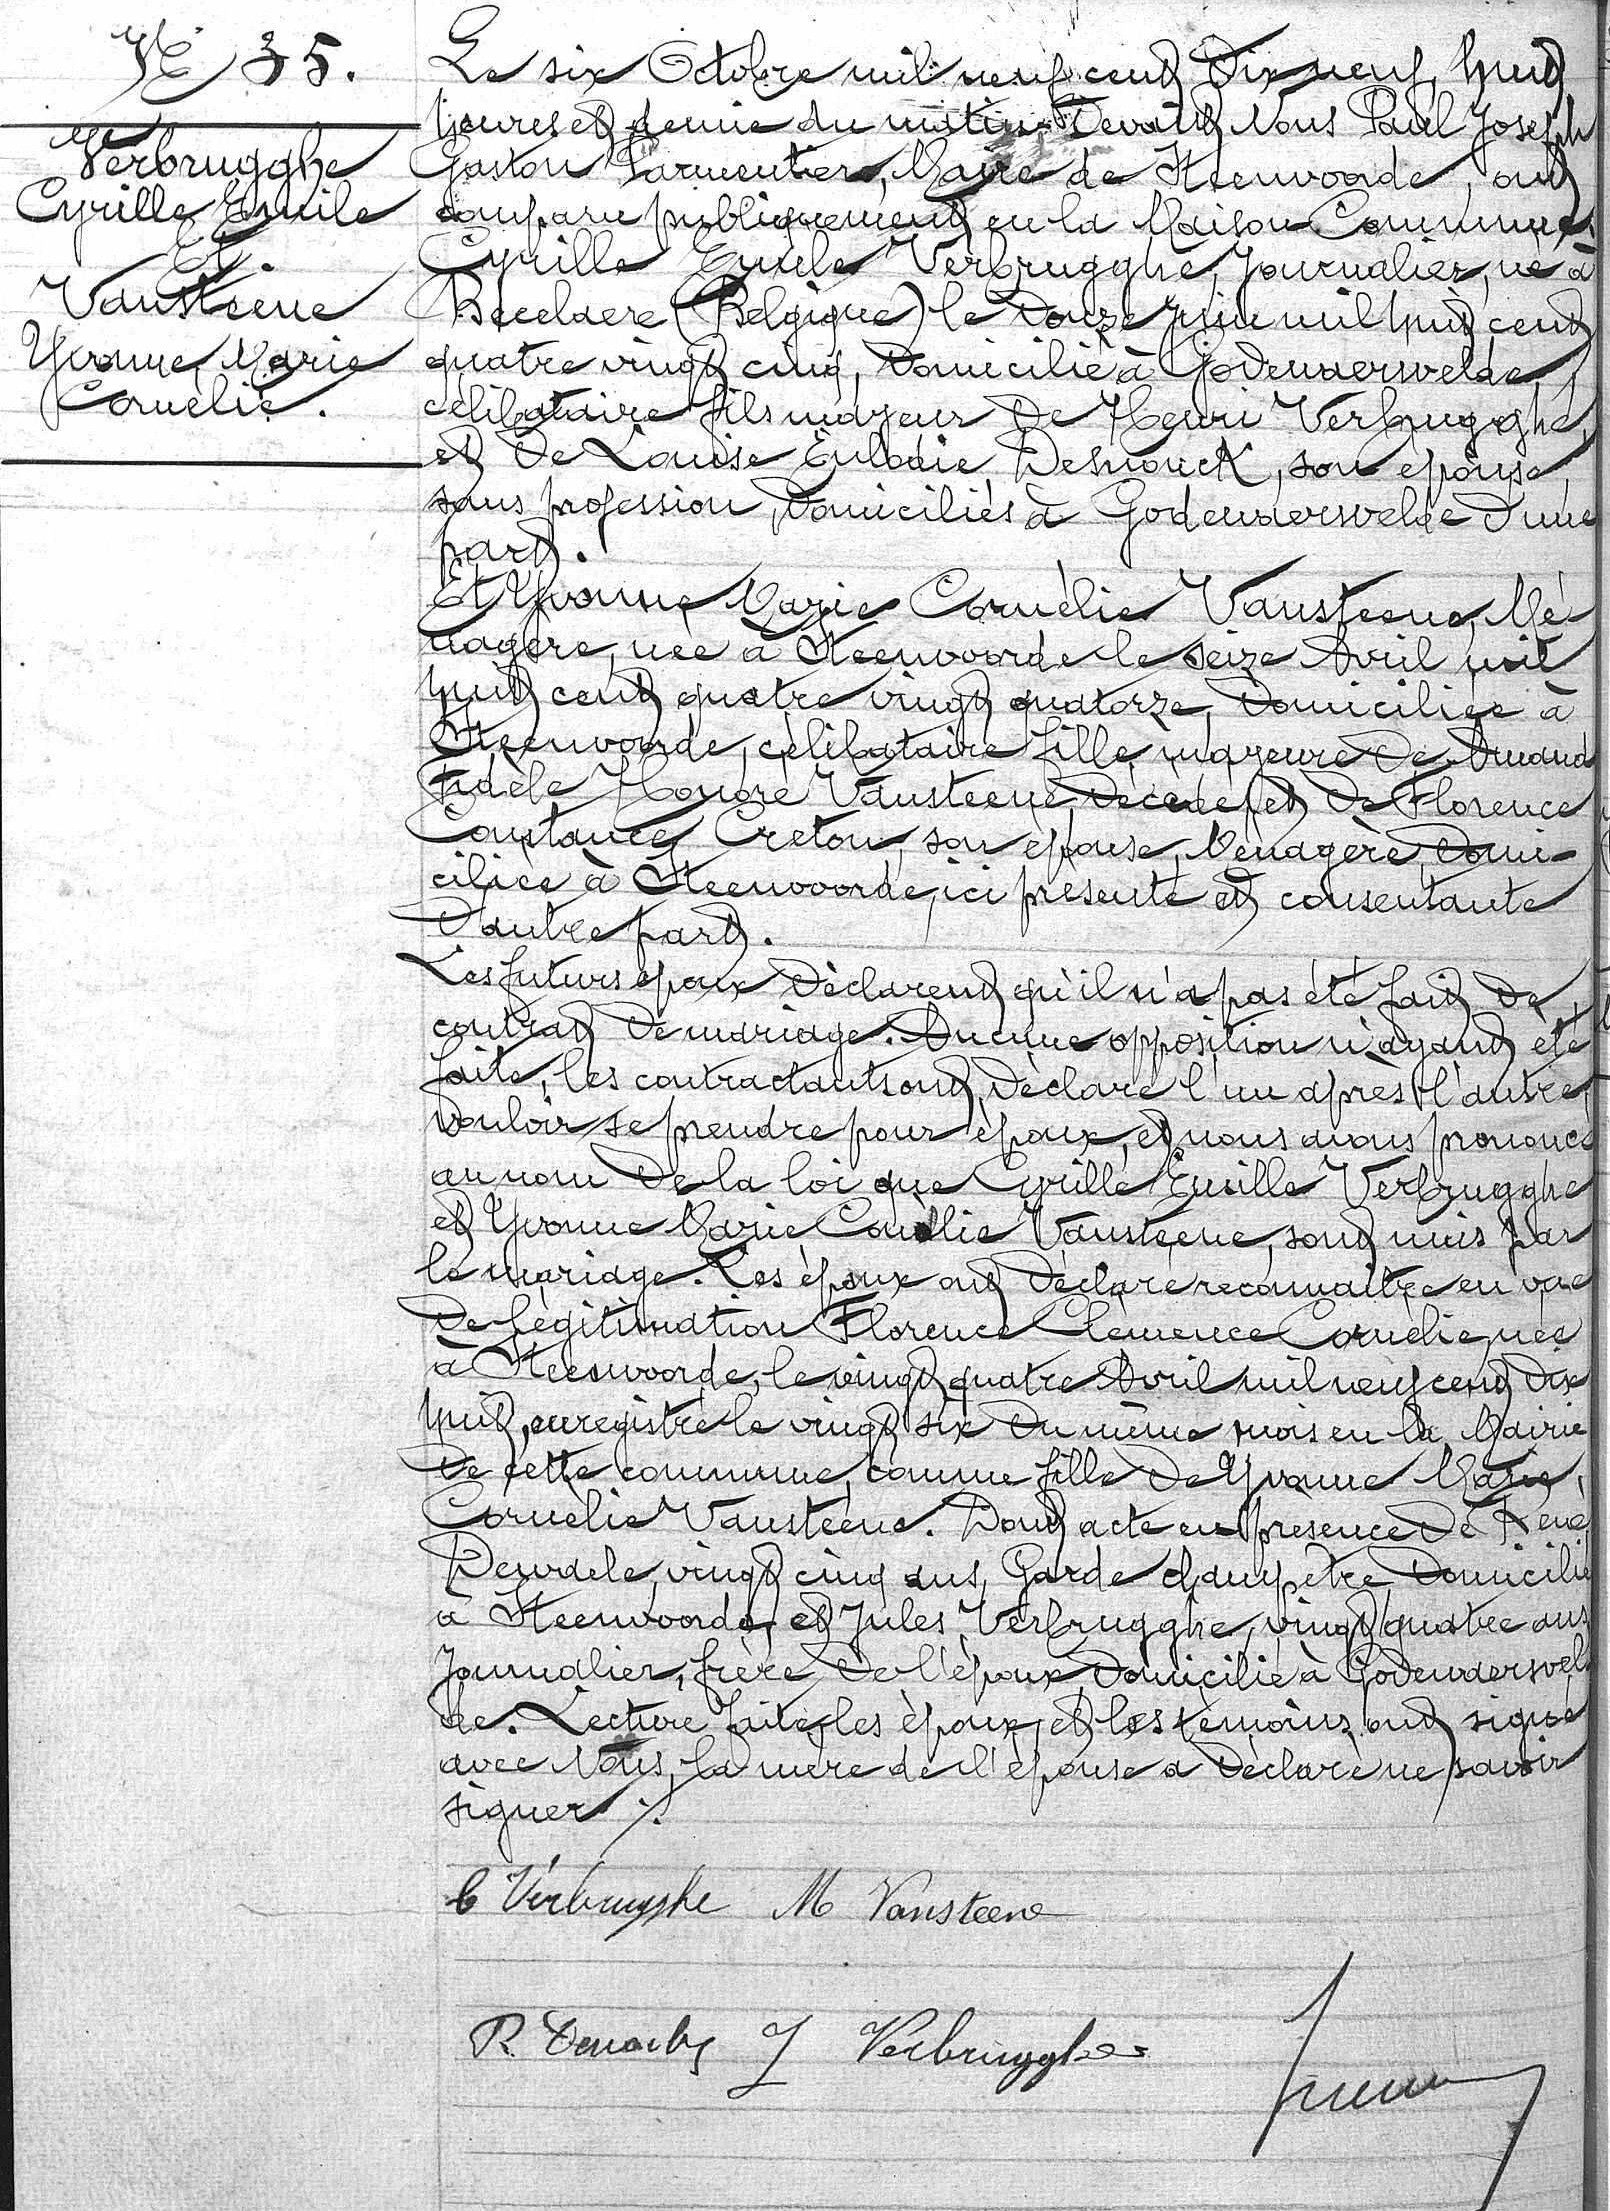 N° 35.
Verbrugghe
Cyrille Emile
Et.
Vansteene
Yvonne, Marie
Cornélie.
Le six Octobre mil neuf cent dix neuf, huit
heures et demie du matin. Devant Nous Paul Joseph
Gaston Parmentier, Maire de Steenvoorde, ont
comparu publiquement en la Maison Commune.
Cyrille Emile Verbrugghe, Journalier, né à
Becelaere (Belgique) le douze juin mil huit cent
quatre vingt cinq, domicilié à Godewaersvelde,
célibataire fils majeur de Henri Verbrugghe,
et de Louise Eulodie Desnouck, son épouse,
sans profession, domiciliés à Godewaersvelde d'une
part.
Et Yvonne Marie Cornélie Vansteene, Mé-
nagère, née à Steenvoorde le seize Avril mil
huit cent quatre vingt quatorze, domiciliée à
Steenvoorde, célibataire fille majeure de Amand
Fidèle Honoré Vansteene, décédé, et de Florence
Constance Creton, son épouse, Ménagère, domi-
ciliée à Steenvoorde, ici présente et consentante
d'autre part.
Les futurs époux déclarent qu'il n'a pas été fait de
contrat de mariage. Aucune opposition n'ayant été
faite, les contractants ont déclaré l'un après l'autre
vouloir se prendre pour époux, et nous avons prononcé
au nom de la loi que Cyrille Emille Verbrugghe
et Yvonne Marie Cornélie Vansteene, sont unis par
le mariage. Les époux ont déclaré reconnaitre en vue
de légitimation Florence Clémence Cornélie, née
à Steenvoorde, le vingt quatre Avril mil neuf cent dix
huit, enregistré le vingt six du même mois en la Mairie
de cette commune, comme fille de Yvonne Marie,
Cornélie Vansteene. Dont acte en présence de René
Dewaele, vingt cinq ans, Garde champetre, domicilié
à Steenvoorde, et Jules Verbrugghe, vingt quatre ans
Journalier, frère de l'époux, domicilié à Godewaersvel-
de. Lecture faite, les époux, et les témoins ont signé
avec Nous, la mère de l'épouse a déclaré ne savoir
signer ./.
C Verbrugghe M Vansteene
R. J Verbrugghe